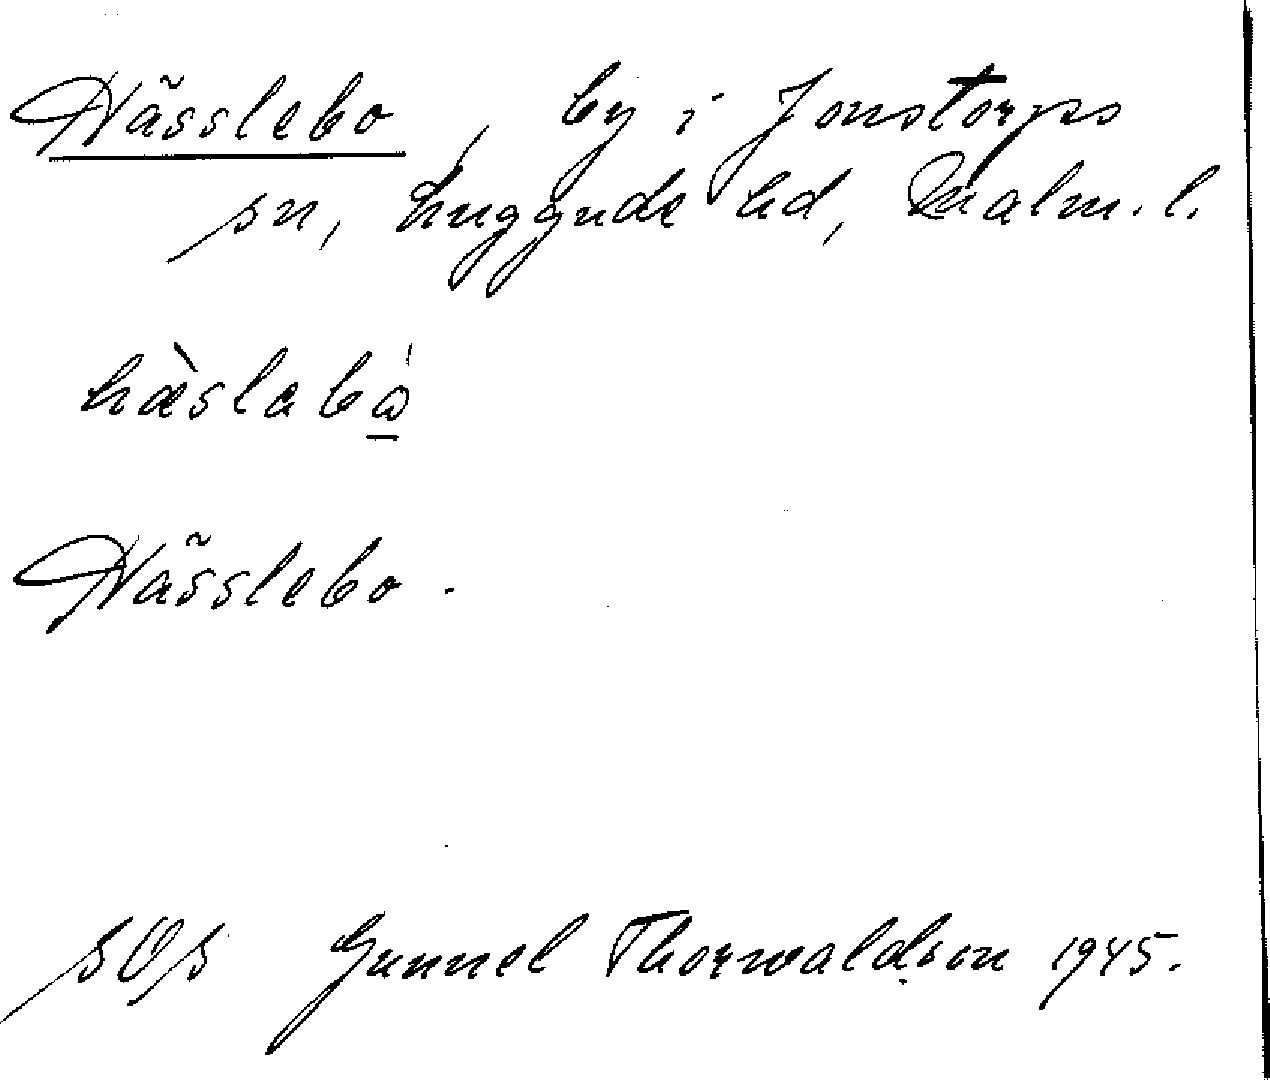 Hässlebo, by i Jonstorps
sn, Luggude hd, Malm. l.
hæ̀slabó
Hässlebo.
SOS Gunnel Thorwaldson 1945.